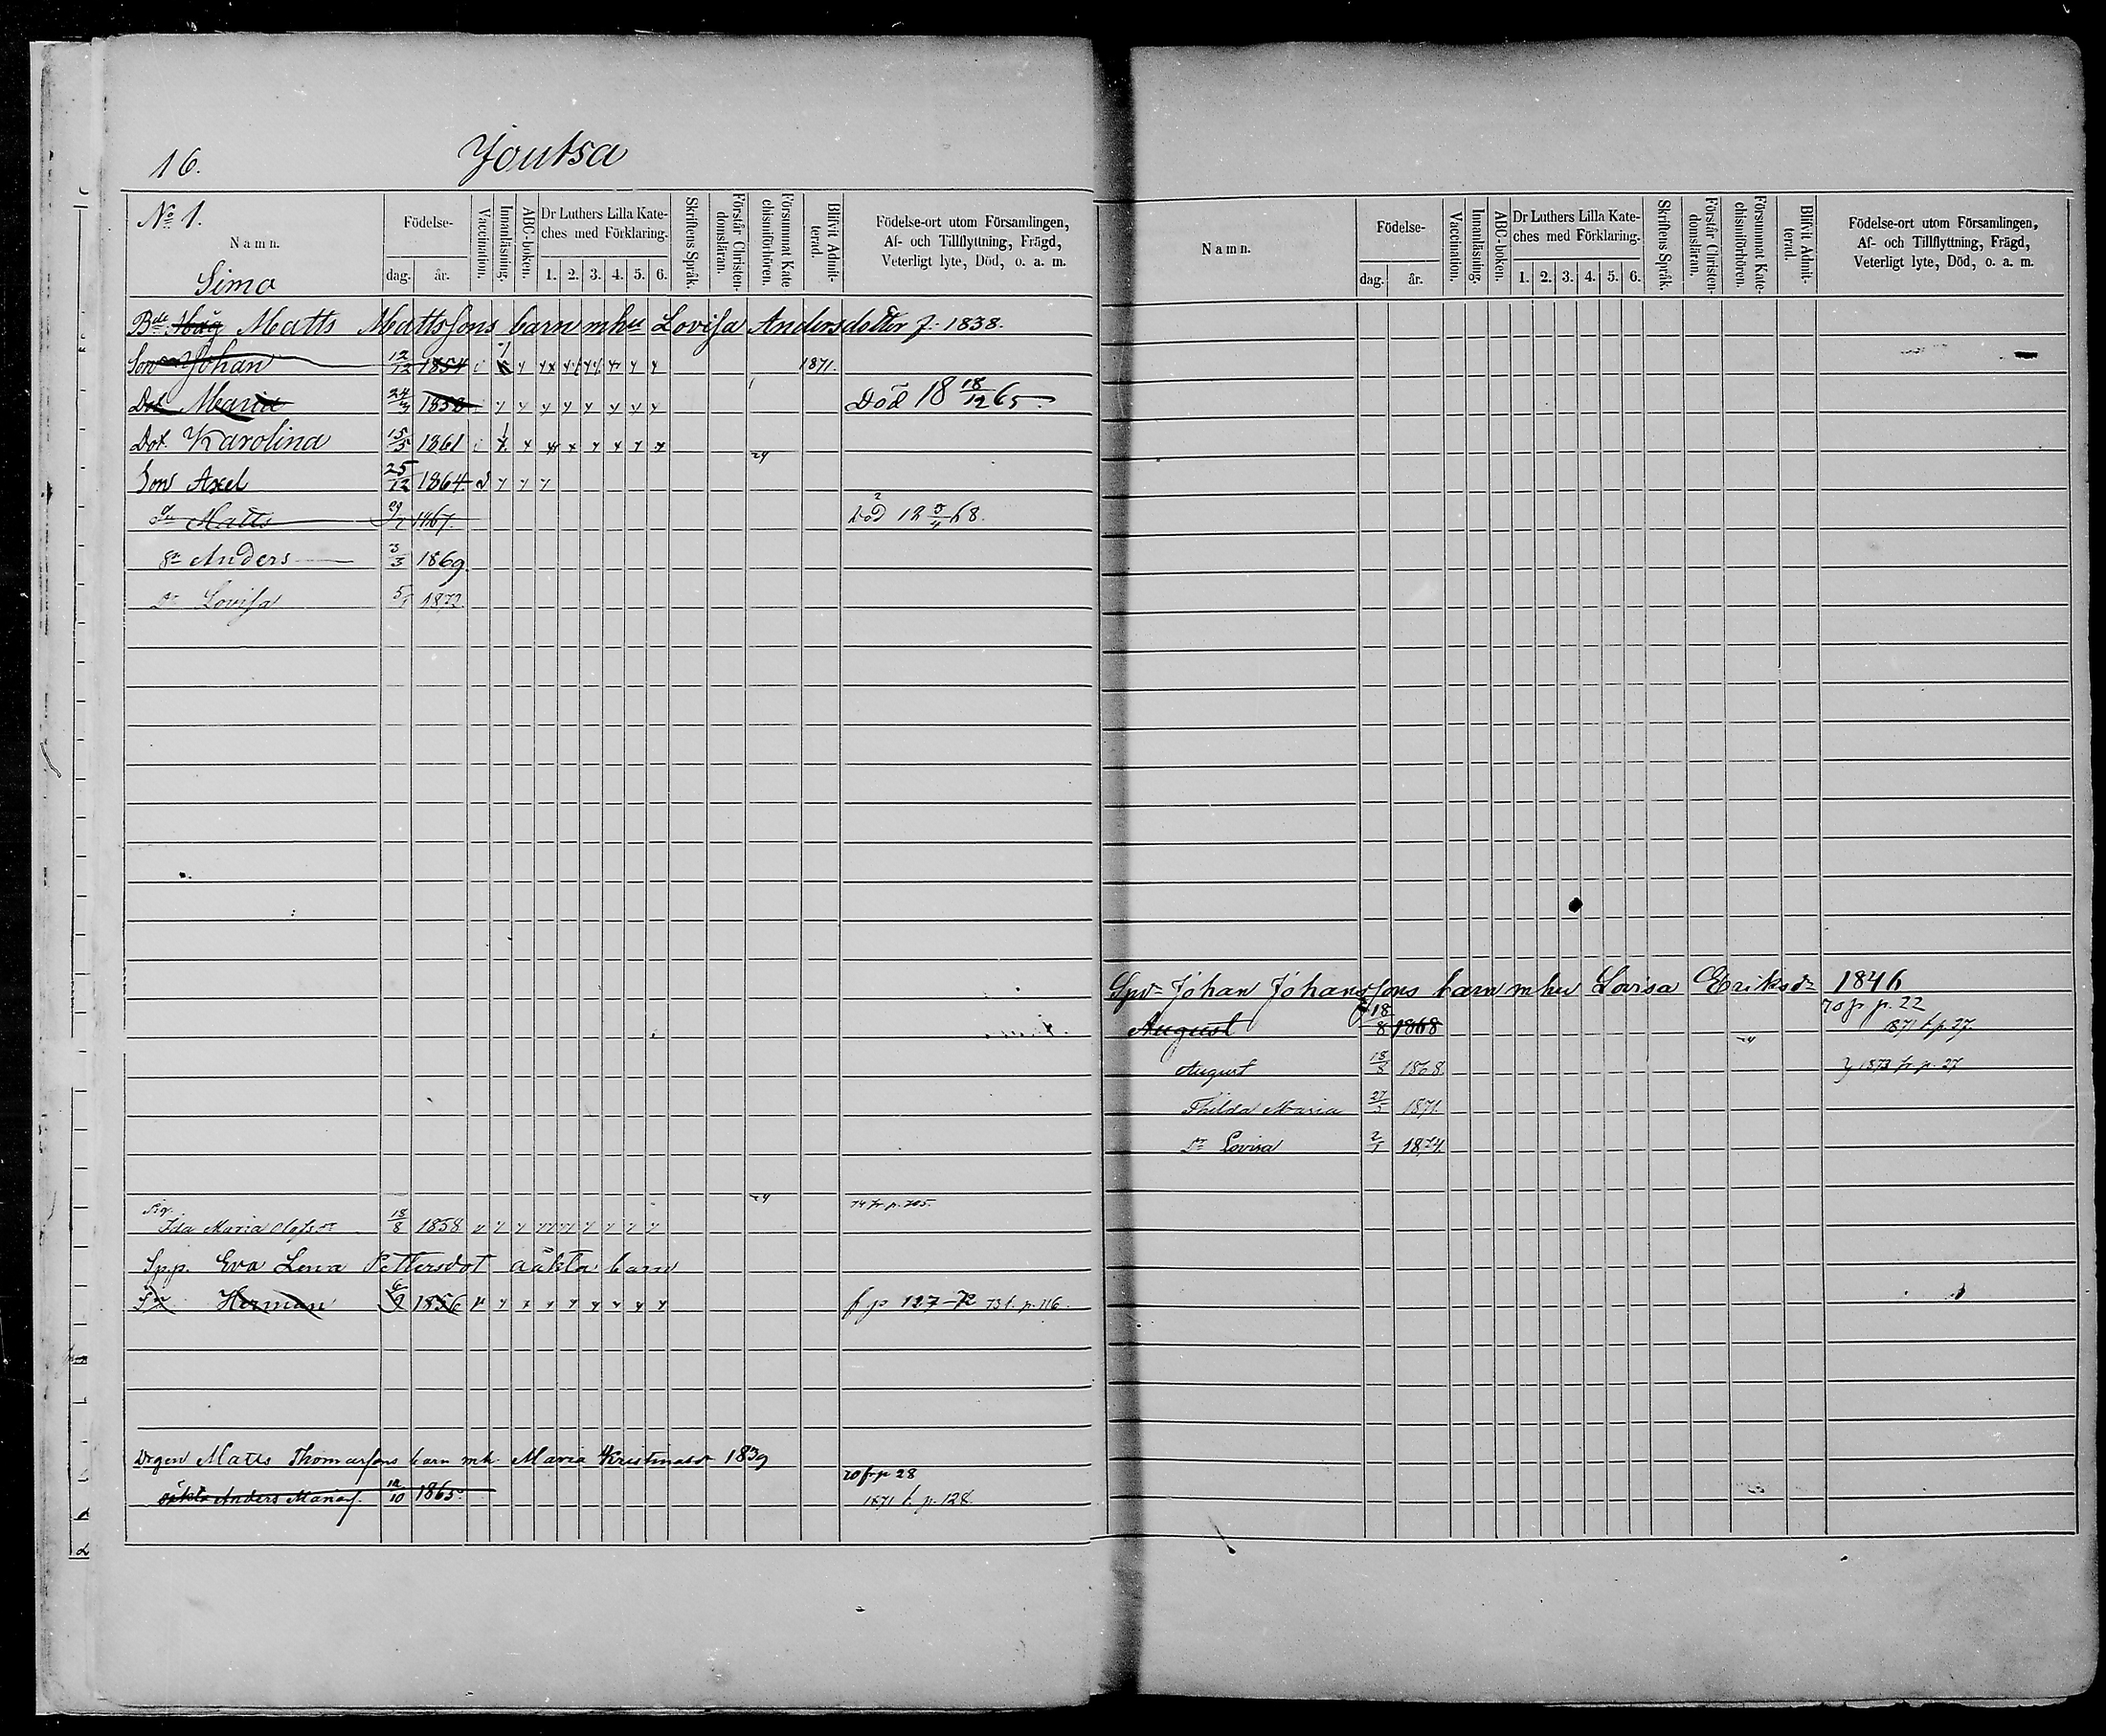 16. Joutsa
No 1.
Namn.
Födelse-
dag. år.
Vaccination.
Innanläsning.
ABC-boken.
Dr Luthers Lilla Kate-
ches med Förklaring.
1. 2. 3. 4. 5. 6.
Skriftens Språk.
Förstår Christen-
domsläran.
Försummat Kate
chismiförhören.
Blifvit Admit-
terad.
Födelse-ort utom Församlingen,
Af- och Tillflyttning, Frägd,
Veterligt lyte, Död, o. a. m.
Simo
Matts Mattssons barn mhu Lovisa Andersdotter f. 1838.
Son Johan 12/12 1854 1871.
Dot Maria 24/3 1858 Död 18 18/12 65.
Dot. Karolina 15/5 1861
Son Axel 25/12 1864
Matts 1867. död 12 68.
Sn Anders 3/3 1869.
Dr Lovisa 5/1 1872.
Pig.
Ida Maria Olofsdr 18/8 1858 74 fr p. 205.
Sp.p. Eva Lena Pettersdot oäkta barn
Sn Herman 6/9 1856 f p 127-72 73 t. p. 116.
Drgen Matts Thomassons barn mh. Maria Kristinasdr 1839
oäkta Anders Mariaf. 12/10 1865. 70 fr p 28
1871 t. p. 128.
Namn.
Födelse-
dag. år.
Vaccination.
Innanläsning.
ABC-boken.
Dr Luthers Lilla Kate-
ches med Förklaring.
1. 2. 3. 4. 5. 6.
Skriftens Språk.
Förstår Christen-
domsläran.
Försummat Kate-
chismiförhören.
Blifvit Admit-
terad.
Födelse-ort utom Församlingen,
Af- och Tillflyttning, Frägd,
Veterligt lyte, Död, o. a. m.
Johan Johanssons barn mhu Lovisa Eriksdr 1846
70 fr p. 22
August 18/8 1868 1871 t p. 27.
August 18/8 1868. 1873 fr p. 27
Thilda Maria 27/5 1871.
Dr Lovisa 2/1 1874.